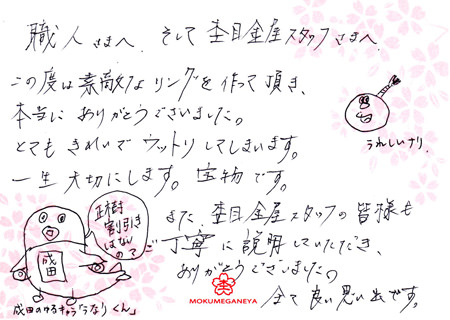 職人さまへ、そして杢目金屋スタッフさまへ
この度は素敵なリングを作って頂き、
本当にありがとうございました。
とてもきれいでウットリしてしまいます。
一生大切にします。宝物です。
うれしいナリ
また、杢目金屋スタッフの皆様も
ご丁寧に説明していただき、
ありがとうございました。
全て良い思い出です。
正樹
割引き
はなん
ので
成田
成田のゆるキャラ「うなりくん」
MOKUMEGANEYA